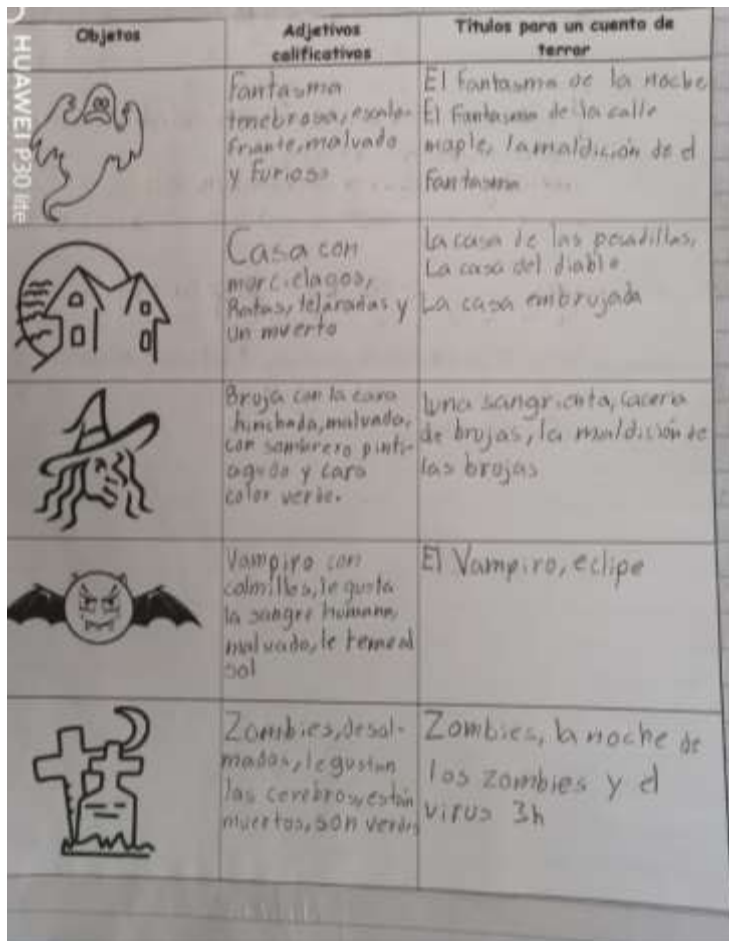 HUAWEI P30 lite
Objetos
Adjetivos
calificativos
Títulos para un cuento de
terror
Fantasma
tenebrosa, escalo-
friante, malvado
y furioso
El Fantasma de la noche
El Fantasma de la calle
maple, la maldición de el
Fantasma
Casa con
morcielagos,
Ratas, telarañas y
un muerto
La casa de las pesadillas,
La casa del diablo
La casa embrujada
Bruja con la cara
hinchada, malvada,
con sombrero punti-
agudo y cara
color verde.
luna sangrienta, caceria
de brujas, la maldición de
las brojas
Vampiro con
colmillos, le gusta
la sangre humana,
malvado, le teme al
sol
El Vampiro, eclipe
Zombies, desal-
mados, le gustan
las cerebros, están
muertos, son verdes
Zombies, la noche de
los zombies y el
virus 3h